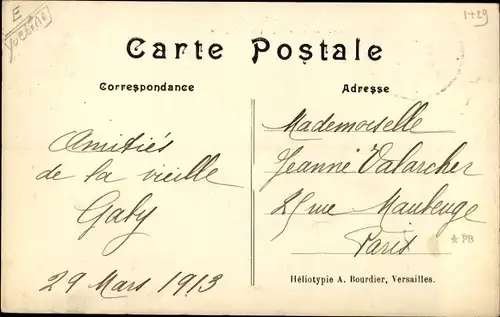 E
1429
Carte Postale
Correspondance
Adresse
Amitiés
de la vieille
Gaby
29 Mars 1913
Mademoiselle
Jeanne Valarcher
25 rue Maubeuge
Paris
*PB
Héliotypie A. Bourdier, Versailles.